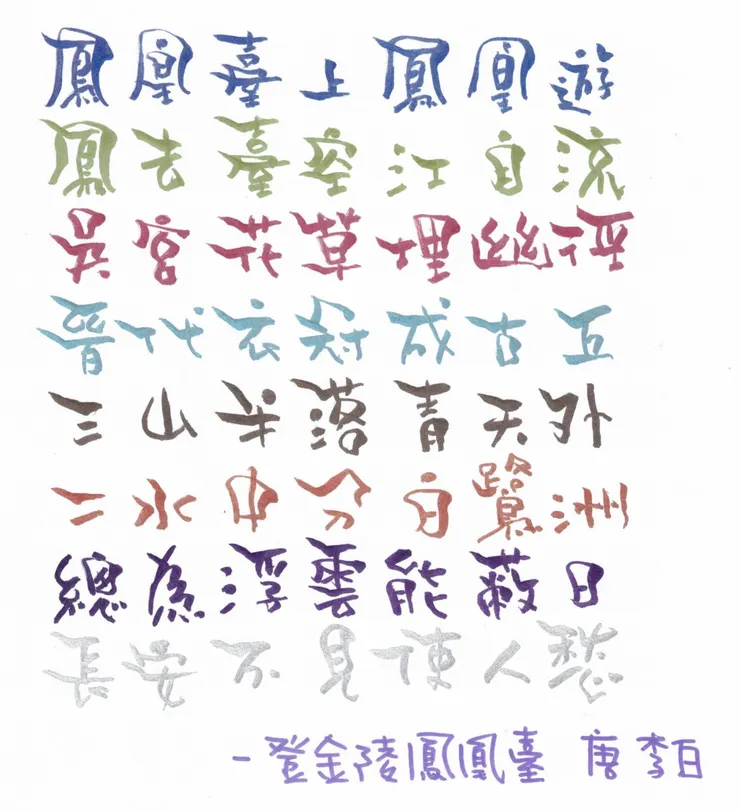 鳳凰臺上鳳凰遊
鳳去臺空江自流
吳宮花草埋幽徑
晉代衣冠成古丘
三山半落青天外
二水中分白鷺洲
總為浮雲能蔽日
長安不見使人愁
-登金陵鳳凰臺 唐 李白